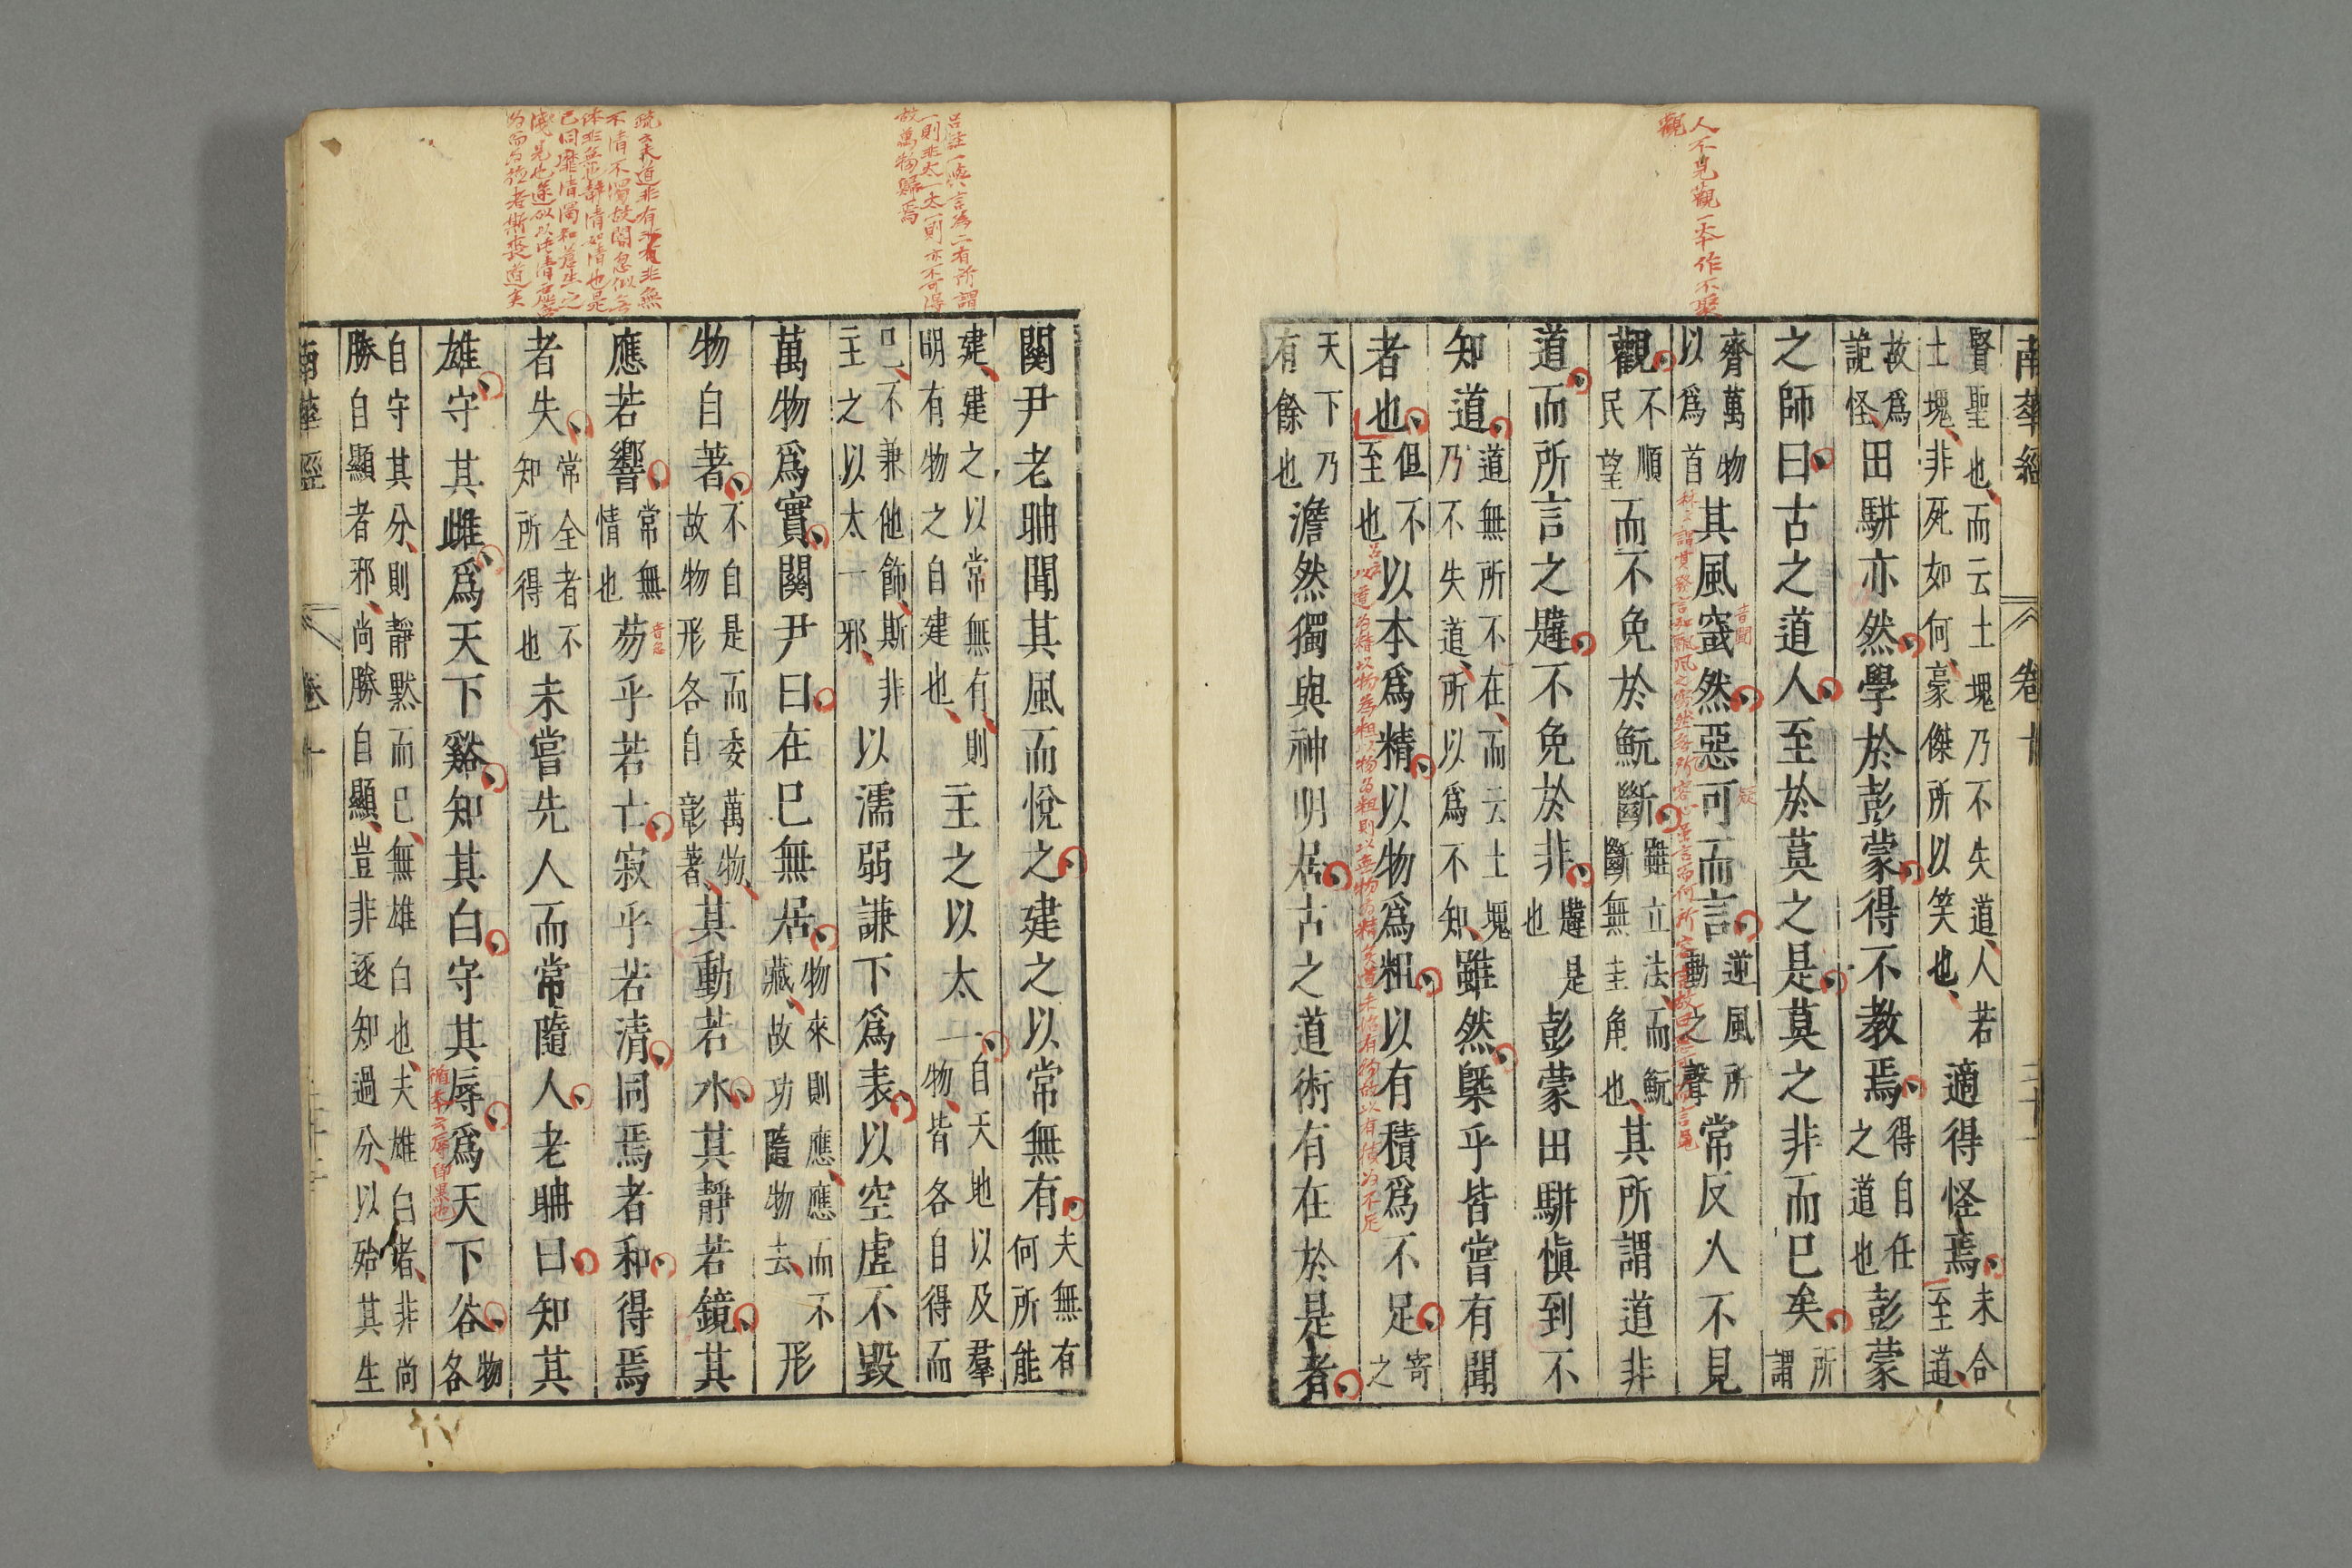 人不見觀一本作不聚
觀
南華經 卷十
賢聖也而云土塊乃不失道人若
土塊非死如何豪傑所以笑也
適得怪焉
未合
至道
故爲
詭怪
田駢亦然學於彭蒙得不教焉
得自任
之道也
彭蒙
之師曰古之道人至於莫之是莫之非而已矣
所
謂
齊萬物
以爲首
其風窢然惡可而言
逆風所
動之聲
常反人不見
音閴
觀
不順
民望
而不免於魭斷
雖立法而魭
斷無圭角也
其所謂道非
道而所言之韙不免於非
韙是
也
彭蒙田駢愼到不
知道
道無所不在而云土塊
乃不失道所以爲不知
雖然槩乎皆嘗有聞
者也
但不
至也
以本爲精以物爲粗以有積爲不足
寄
之
天下乃
有餘也
澹然獨與神明居古之道術有在於是者
故萬物歸焉
關尹老聃聞其風而悅之建之以常無有
夫無有
何所能
建建之以常無有則
明有物之自建也
主之以太一
自天地以及羣
物皆各自得而
已不兼他飾斯非
主之以太一邪
以濡弱謙下爲表以空虛不毀
萬物爲實關尹曰在已無居
物來則應應而不
藏故功隨物去
形
物自著
不自是而委萬物
故物形各自彰著
其動若水其靜若鏡其
應若響
常無
情也
芴乎若亡寂乎若清同焉者和得焉
音忽
者失
常全者不
知所得也
未嘗先人而常隨人老聃曰知其
雄守其雌爲天下谿知其白守其辱爲天下谷
物
各
循本云辱即黑也
自守其分則靜默而已無雄白也夫雄白者非尚
勝自顯者邪尚勝自顯豈非逐知過分以殆其生
南華經 卷十